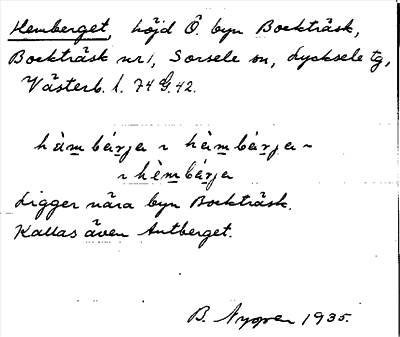 Hemberget, höjd Ö. byn Bockträsk,
Bockträsk nr 1, Sorsele sn, Lycksele tg,
Västerb. l. 74 G. 42.
hàm bárja ~ hàmbárja ~
~ hèmbárja
Ligger nära byn Bockträsk.
Kallas även Antberget.
B. Nygren 1935.